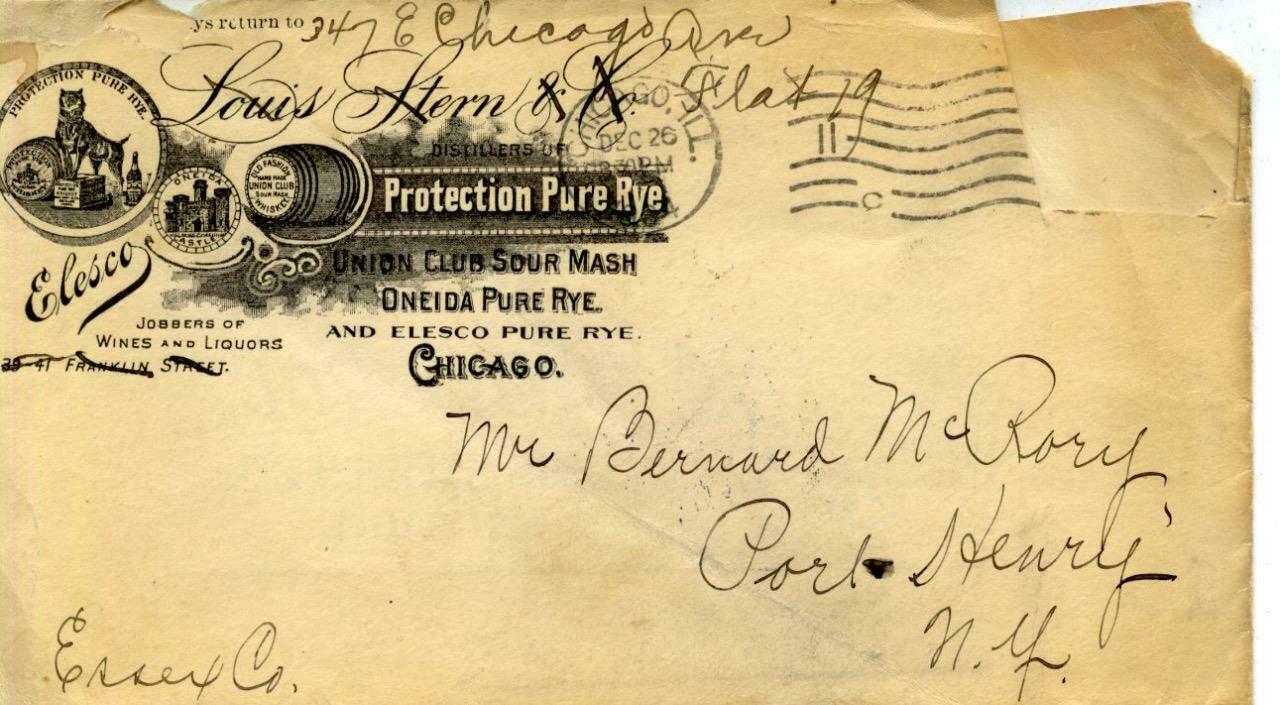 ys return to 347 E Chicago Ave
Flat 19
Louis Stern & Co.
PROTECTION PURE RYE.
DISTILLERS OF
Protection Pure Rye
OLD FASHION
HAND MADE
UNION CLUB
SOUR MASH
WHISKEY
ONEIDA
CASTLE
Elesco
UNION CLUB SOUR MASH
ONEIDA PURE RYE.
AND ELESCO PURE RYE.
CHICAGO.
JOBBERS OF
WINES AND LIQUORS
39-41 FRANKLIN STREET.
CHICAGO, ILL.
DEC 26
30 PM
11
C
Mr Bernard McRory
Port Henry
N.Y.
Essex Co.